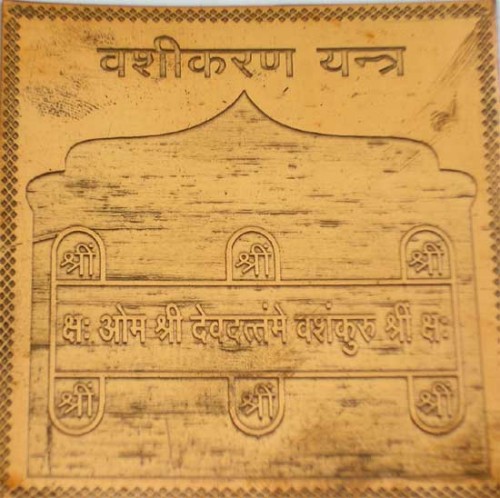 वशीकरण यन्त्र
श्रीं श्रीं श्रीं
क्षः ओम श्री देवदत्तंमे वशंकुरु श्रीं क्षः
श्रीं श्रीं श्रीं